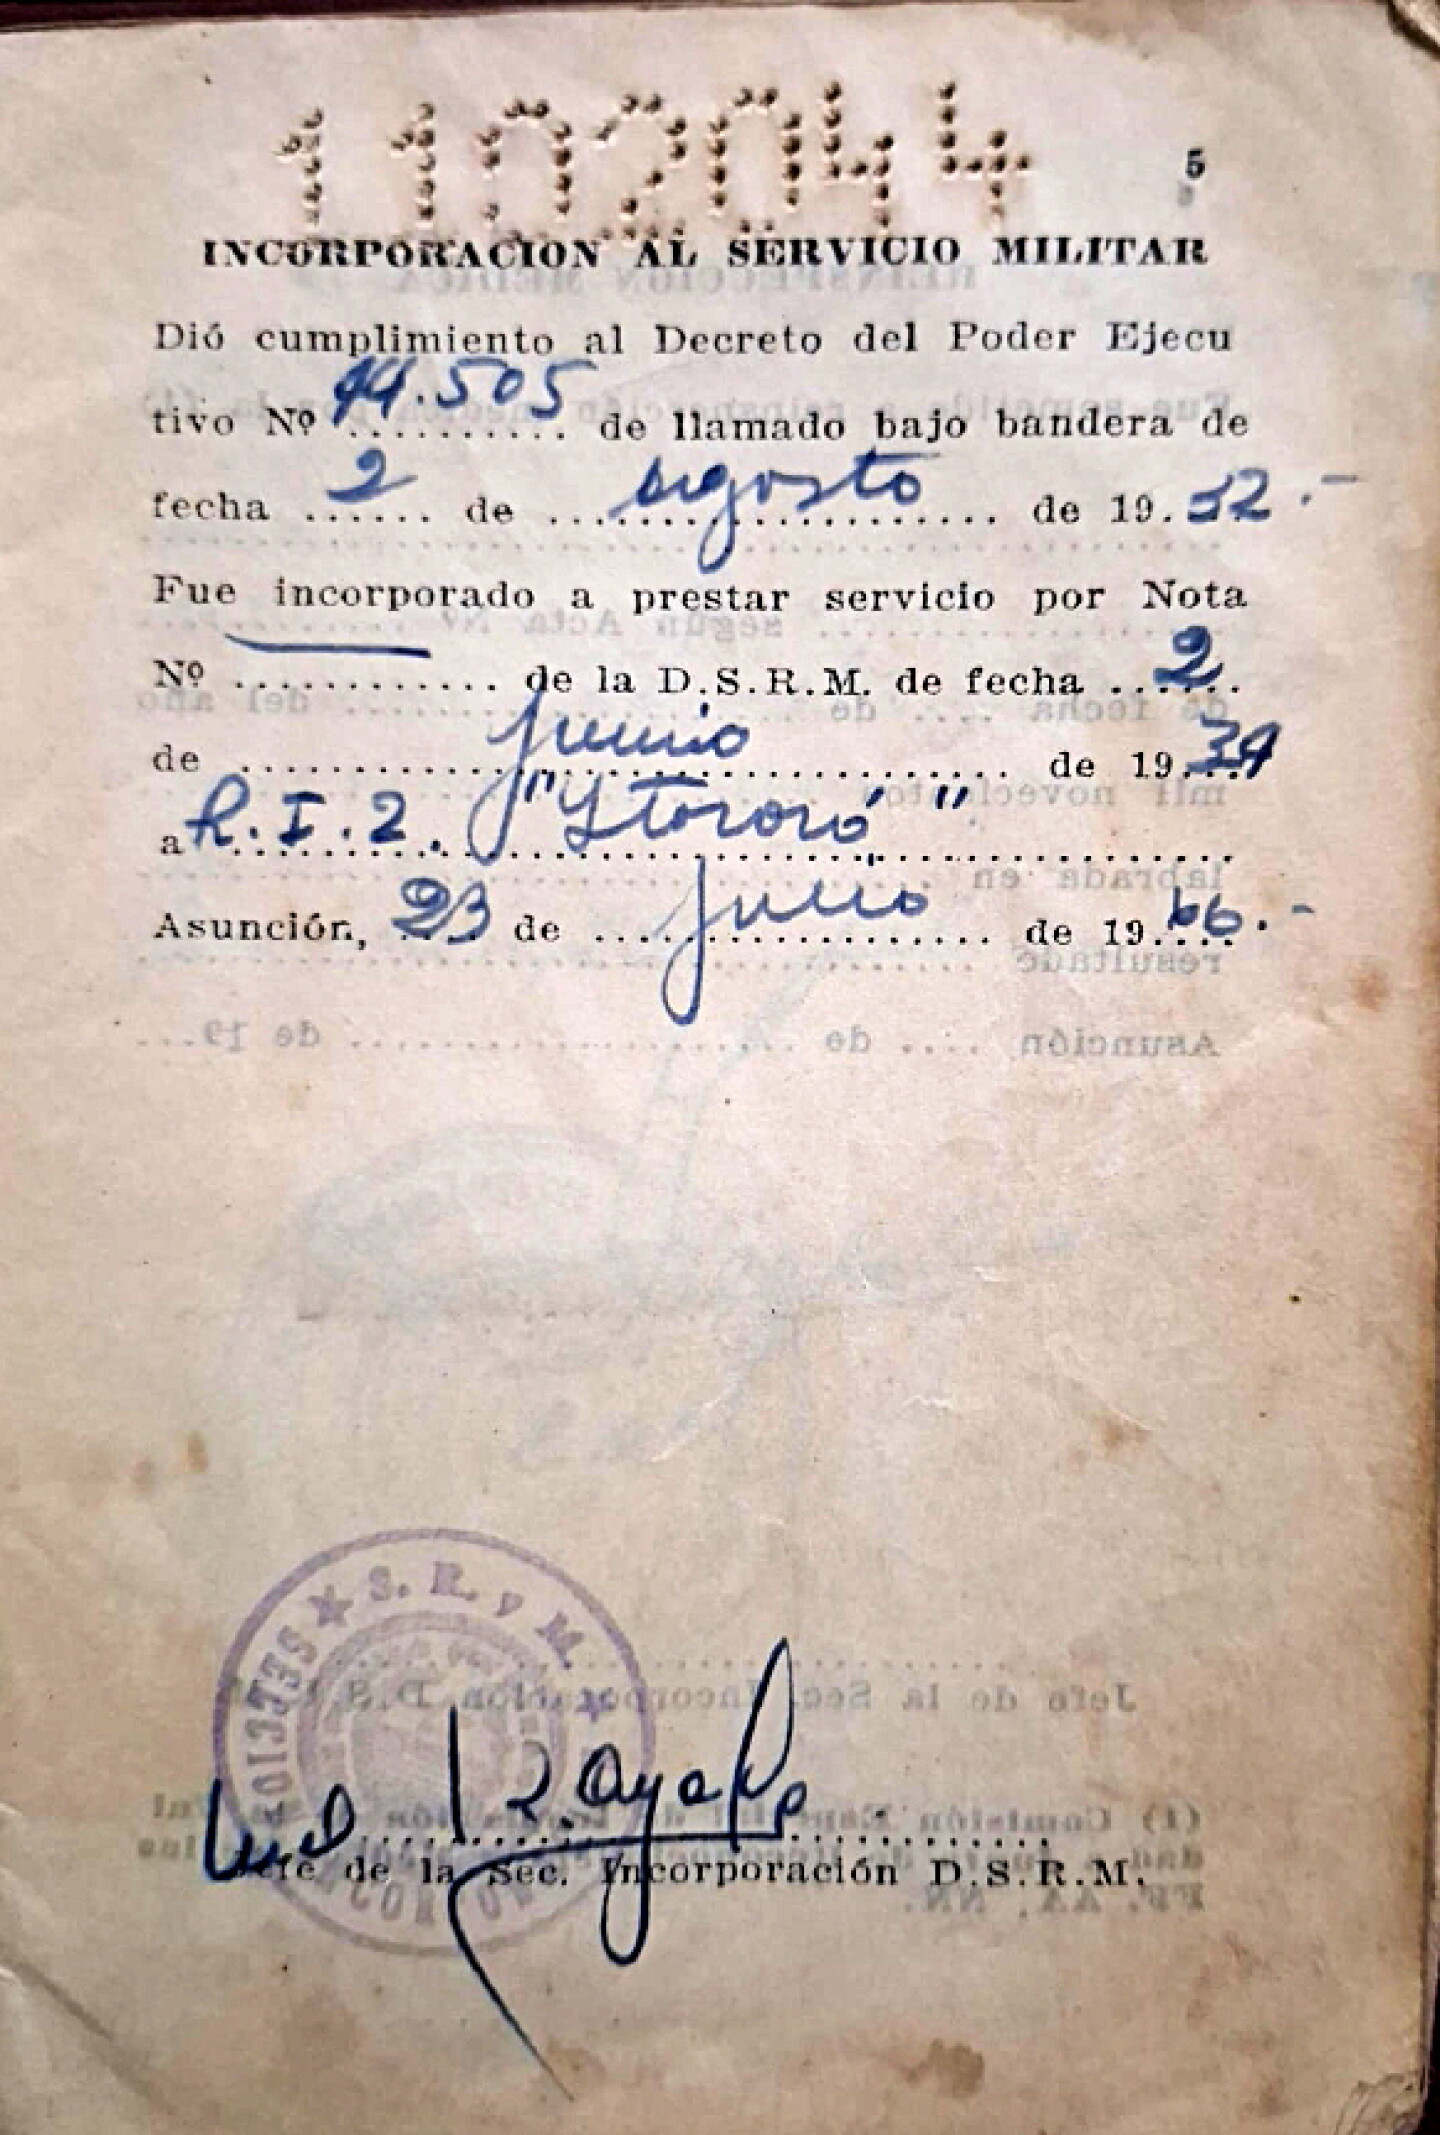 1102044
5
INCORPORACION AL SERVICIO MILITAR
Dió cumplimiento al Decreto del Poder Ejecu
tivo Nº 44.505 de llamado bajo bandera de
fecha 2 de agosto de 1932.-
Fue incorporado a prestar servicio por Nota
Nº ............ de la D.S.R.M. de fecha 2
de junio de 1934
a R.I.2. "Ytororó"
Asunción, 23 de julio de 1966.-
S. R. y M.
SECCION
R. Ayala
Jefe de la Sec. Incorporación D.S.R.M.